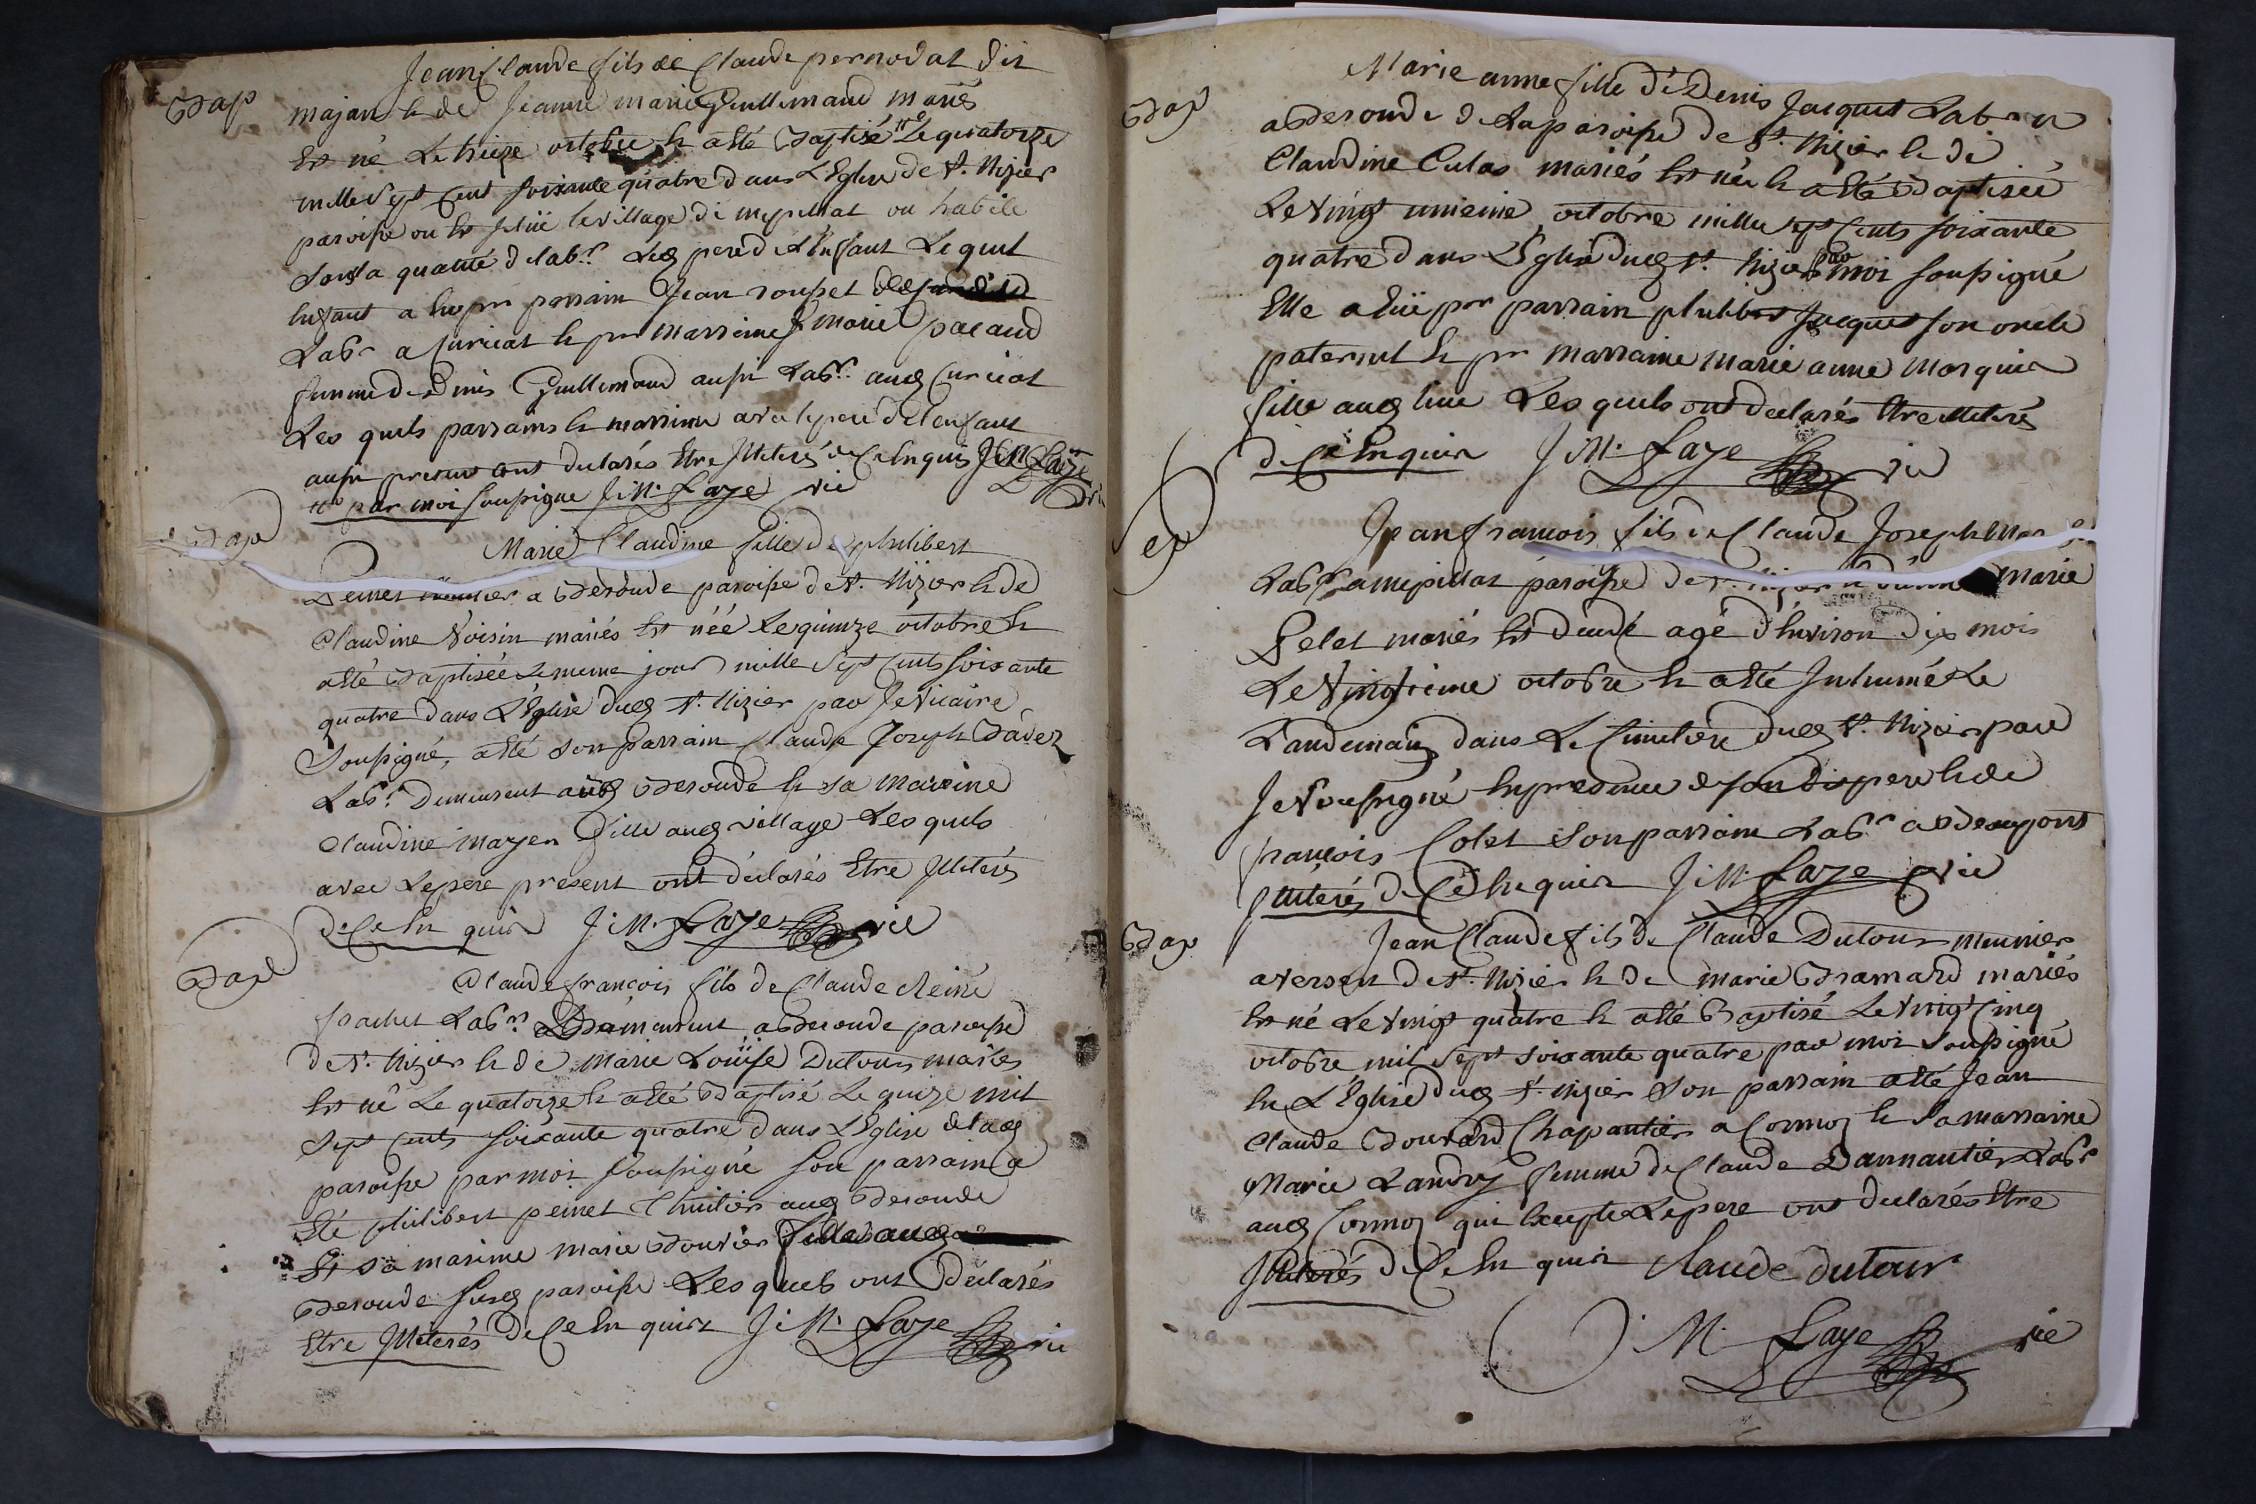 Jean Claude fils de Claude pernodat dit
Bap
majan & de Jeanne marie Guillemaud mariés
est né le treize octobre & a été Baptisé le quatorze
mille sept cent soixante quatre dans L'Eglise de St. Nizier
paroisse ou est situë le village de mepillat ou habite
sous la qualité de labr. led pere de L'enfant Lequel
enfant a eu pr parrain Jean rousset
Labr a Curciat & pr marraine marie pacaud
femme de denis Guillemaud aussi Labr. aud Curciat
Les quels parrains & marraine avec le pere de l'enfant
aussi present ont declarés Etre Illiterés de ce Enquis J: M: Laÿe
par moi soussigné J: M: Laye vic
Bap
Marie Claudine fille de philibert
peinet a Beronde paroisse de St. Nizier & de
Claudine Voisin mariés est néé Le quinze octobre &
a été Baptisée le meme jour mille sept cents soixante
quatre dans L'Eglise dud St. Nizier par Je Vicaire
Soussigné, a été son parrain Claude Joseph
Labr. Demeurent aud Beronde & sa maraine
Claudine mayer fille aud village Les quels
avec Le pere present ont déclarés Etre Illiterés
de Ce En quis J: M: Laye vic
Bap
Claude françois fils de Claude Reiné
Labr. Demeurent a Beronde paroisse
de St. Nizier & de Marie Loüise Dutour mariés
est né Le quatorze & a été Baptisé Le quize mil
sept cents soixante quatre dans L'Eglise de lad
paroisse par moi soussigné son parrain a
Eté philibert peinet Thuilier aud Beronde
Et sa maraine marie Bouvier fille aud
Beronde susd paroisse Les quels ont Déclarés
Etre Illiterés de Ce En quis J: M: Laye vic
Marie anne fille de Denis Jacquet Labr
Bap
a Beronde de la paroisse de St. Nizier & de
Claudine Culas mariés est née & a été Baptisée
Le Vingt unieme octobre mille sept cents soixante
quatre dans L'Eglise dud St. Nizier par moi soussigné
Elle a eüe pr parrain philibert Jacquet son oncle
paternel & pr marraine marie anne Morguier
fille aud lieu Les quels ont declarés Etre illiterés
de Ce Enquis J: M: Laye vic
Jean francois fils de Claude Joseph
Labr a mepillat paroisse de St. Nizier & d'anne marie
Pelet mariés est decedé agé d'Environ dix mois
Le Vingtieme octobre & a été Inhumé Le
Landemain dans Le Cimetiere dud St. Nizier par
Je soussigné En presence de son dit pere & de
françois Colet son parrain Labr a Beaupont
Illiterés de Cë Enquis J: M: Laye vic
Bap
Jean Claude fils de Claude Dutour meunier
a versey de St. Nizier & de marie Bramard mariés
est né Le Vingt quatre & a été Baptisé Le Vingt Cinq
octobre mil sept soixante quatre par moi soussigné
En L'Eglise dud St. Nizier Son parrain a été Jean
Claude Bouvard Chapantier a Cormoz & sa marraine
Marie Landry femme de Claude Dannantier Labr
aud Cormoz qui Excepté Le pere ont declarés Etre
Illiterés de Ce En quis Claude dutour
J: M: Laye vic